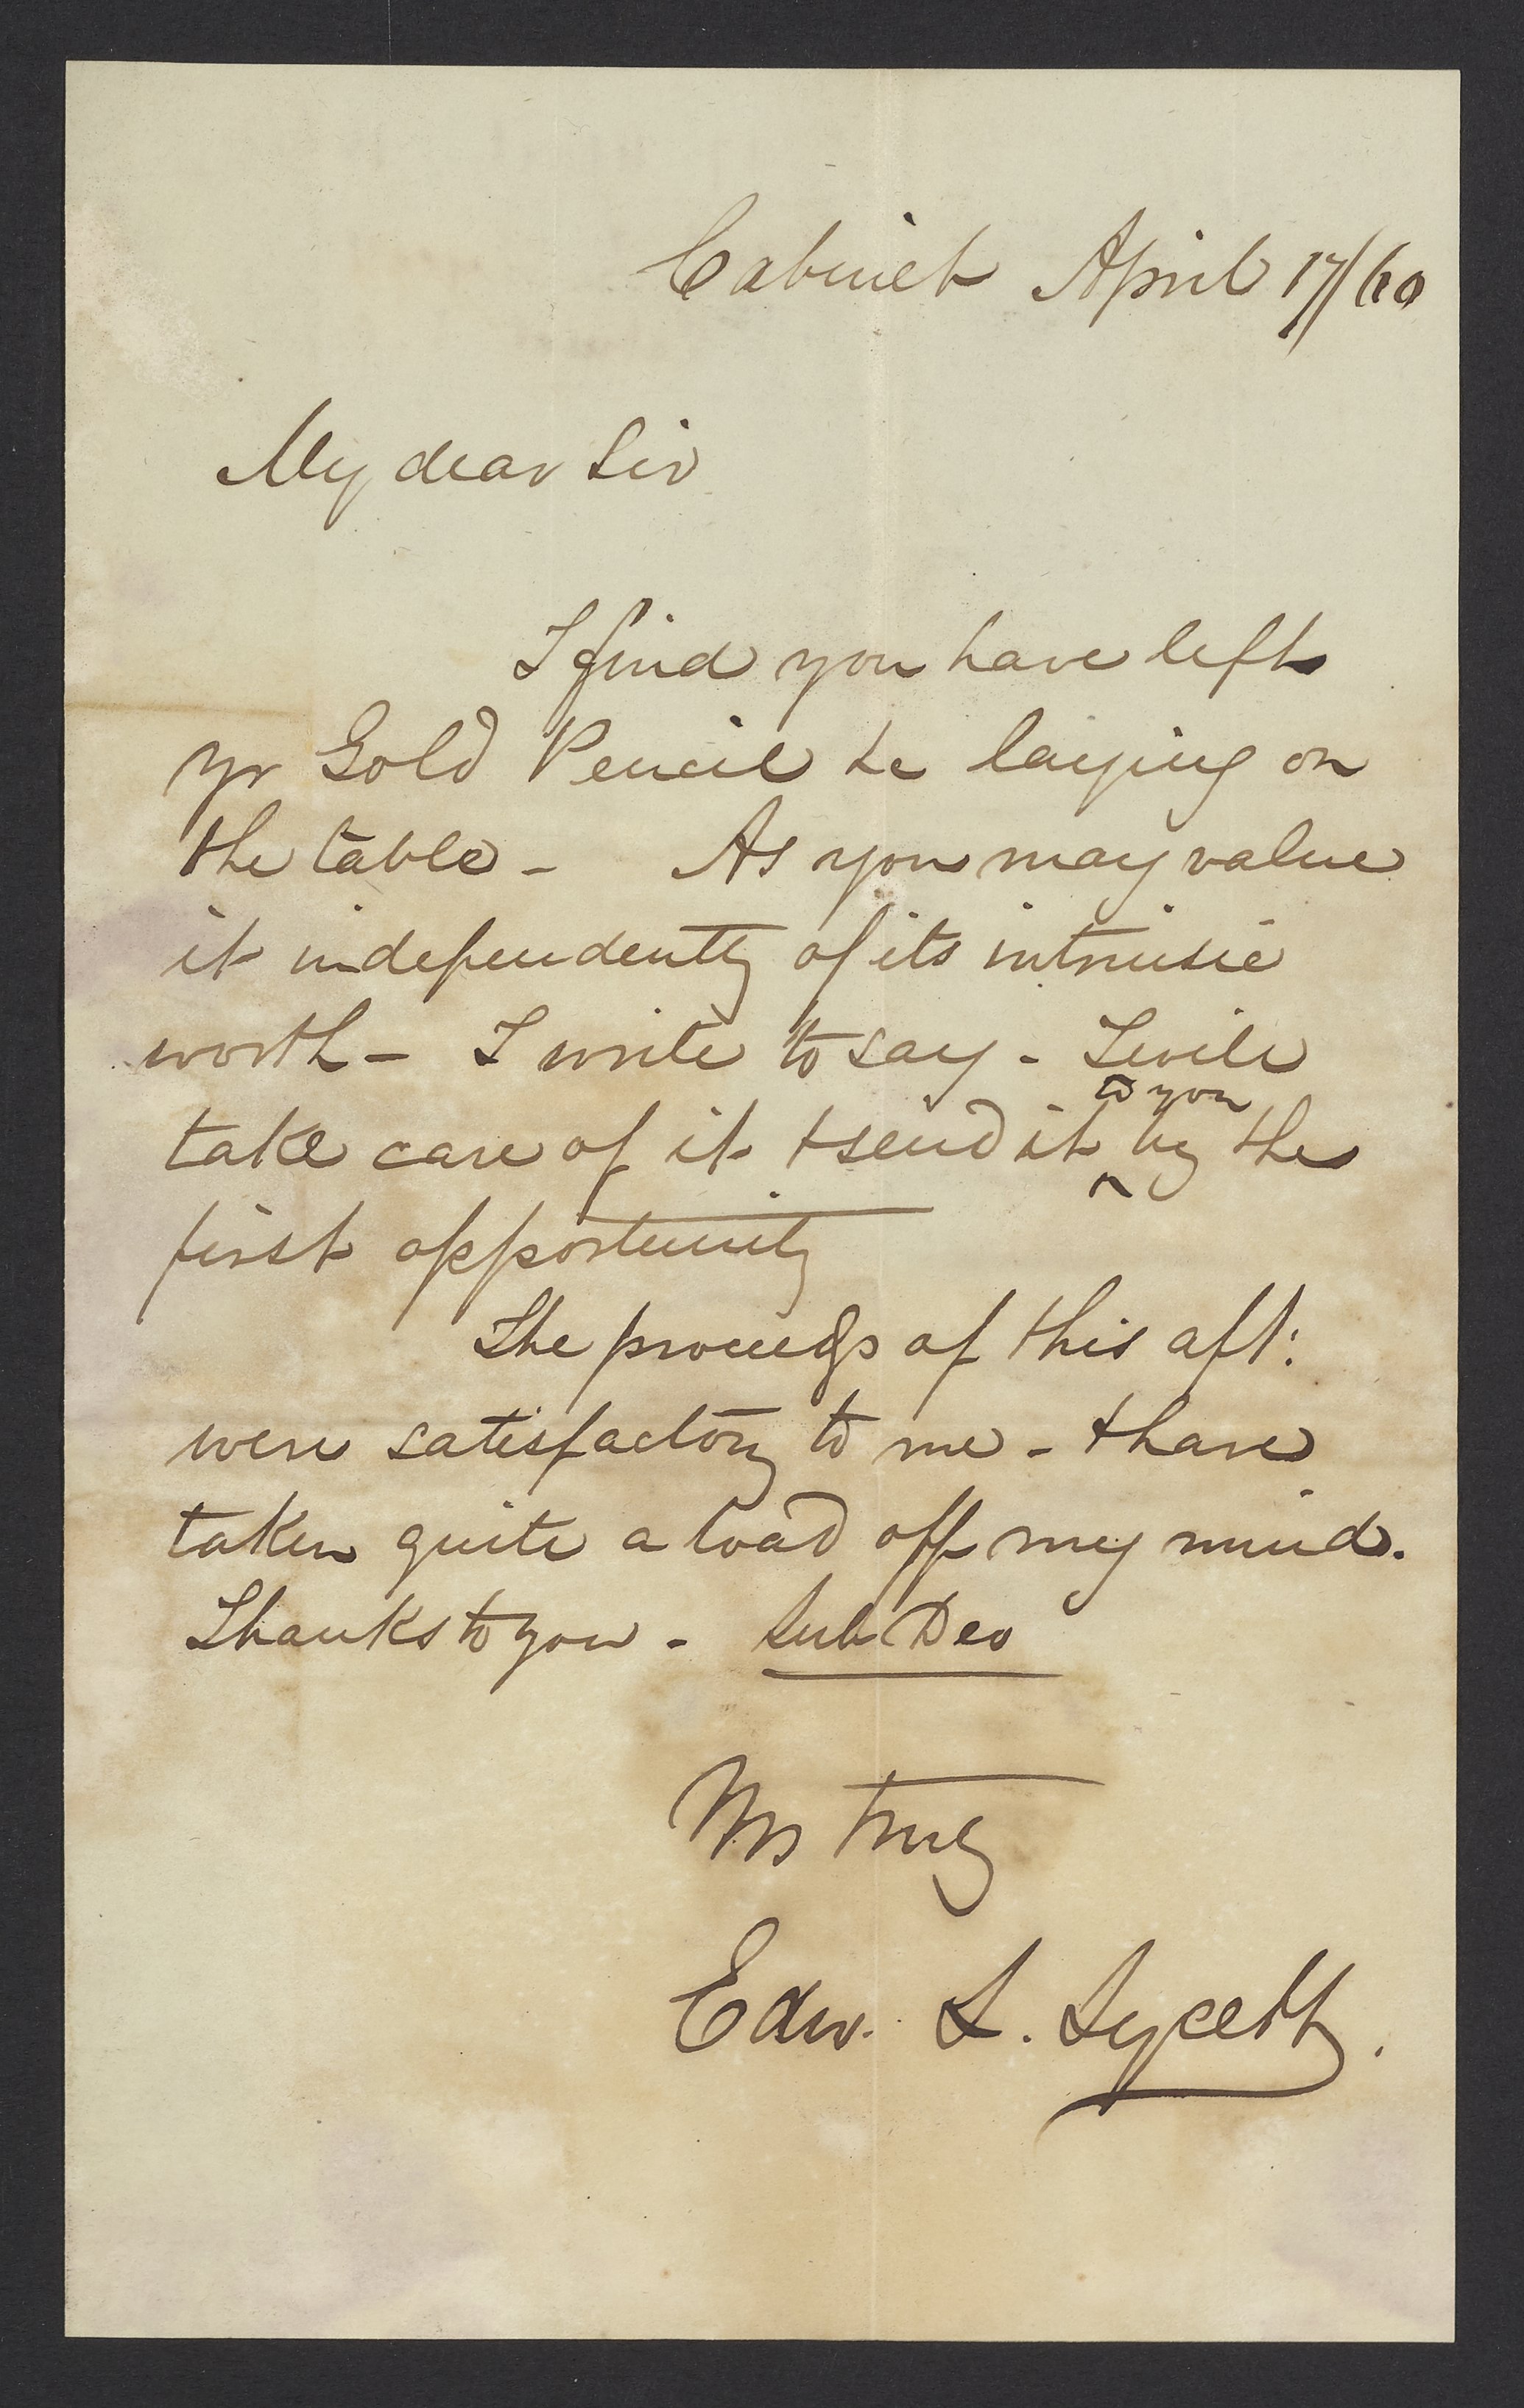 Cabinet April 17/60
My dear Sir
I find you have left
yr Gold Pencil &c laying on
the table - As you may value
it independently of its intrinsic
worth - I write to say - I will
to you
take care of it & send it ^ by the
first opportunity
The proceedgs of this aft:
were satisfactory to me - & have
taken quite a load off my mind.
Thanks to you - Sub Deo
Yrs truly
Edw. L. Lycett.